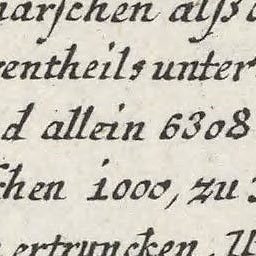 marſchen alſs
rentheils unter
d allein 6308
chen 1000, zu
ertruncken.